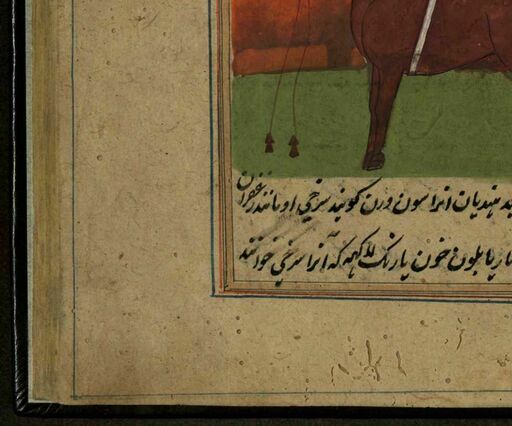 ید هندیان انرا سون ورن کویند سرخی او مانند زعفران
یا بلون خون یا رنک لاکهه که آنرا سرخی خوانند